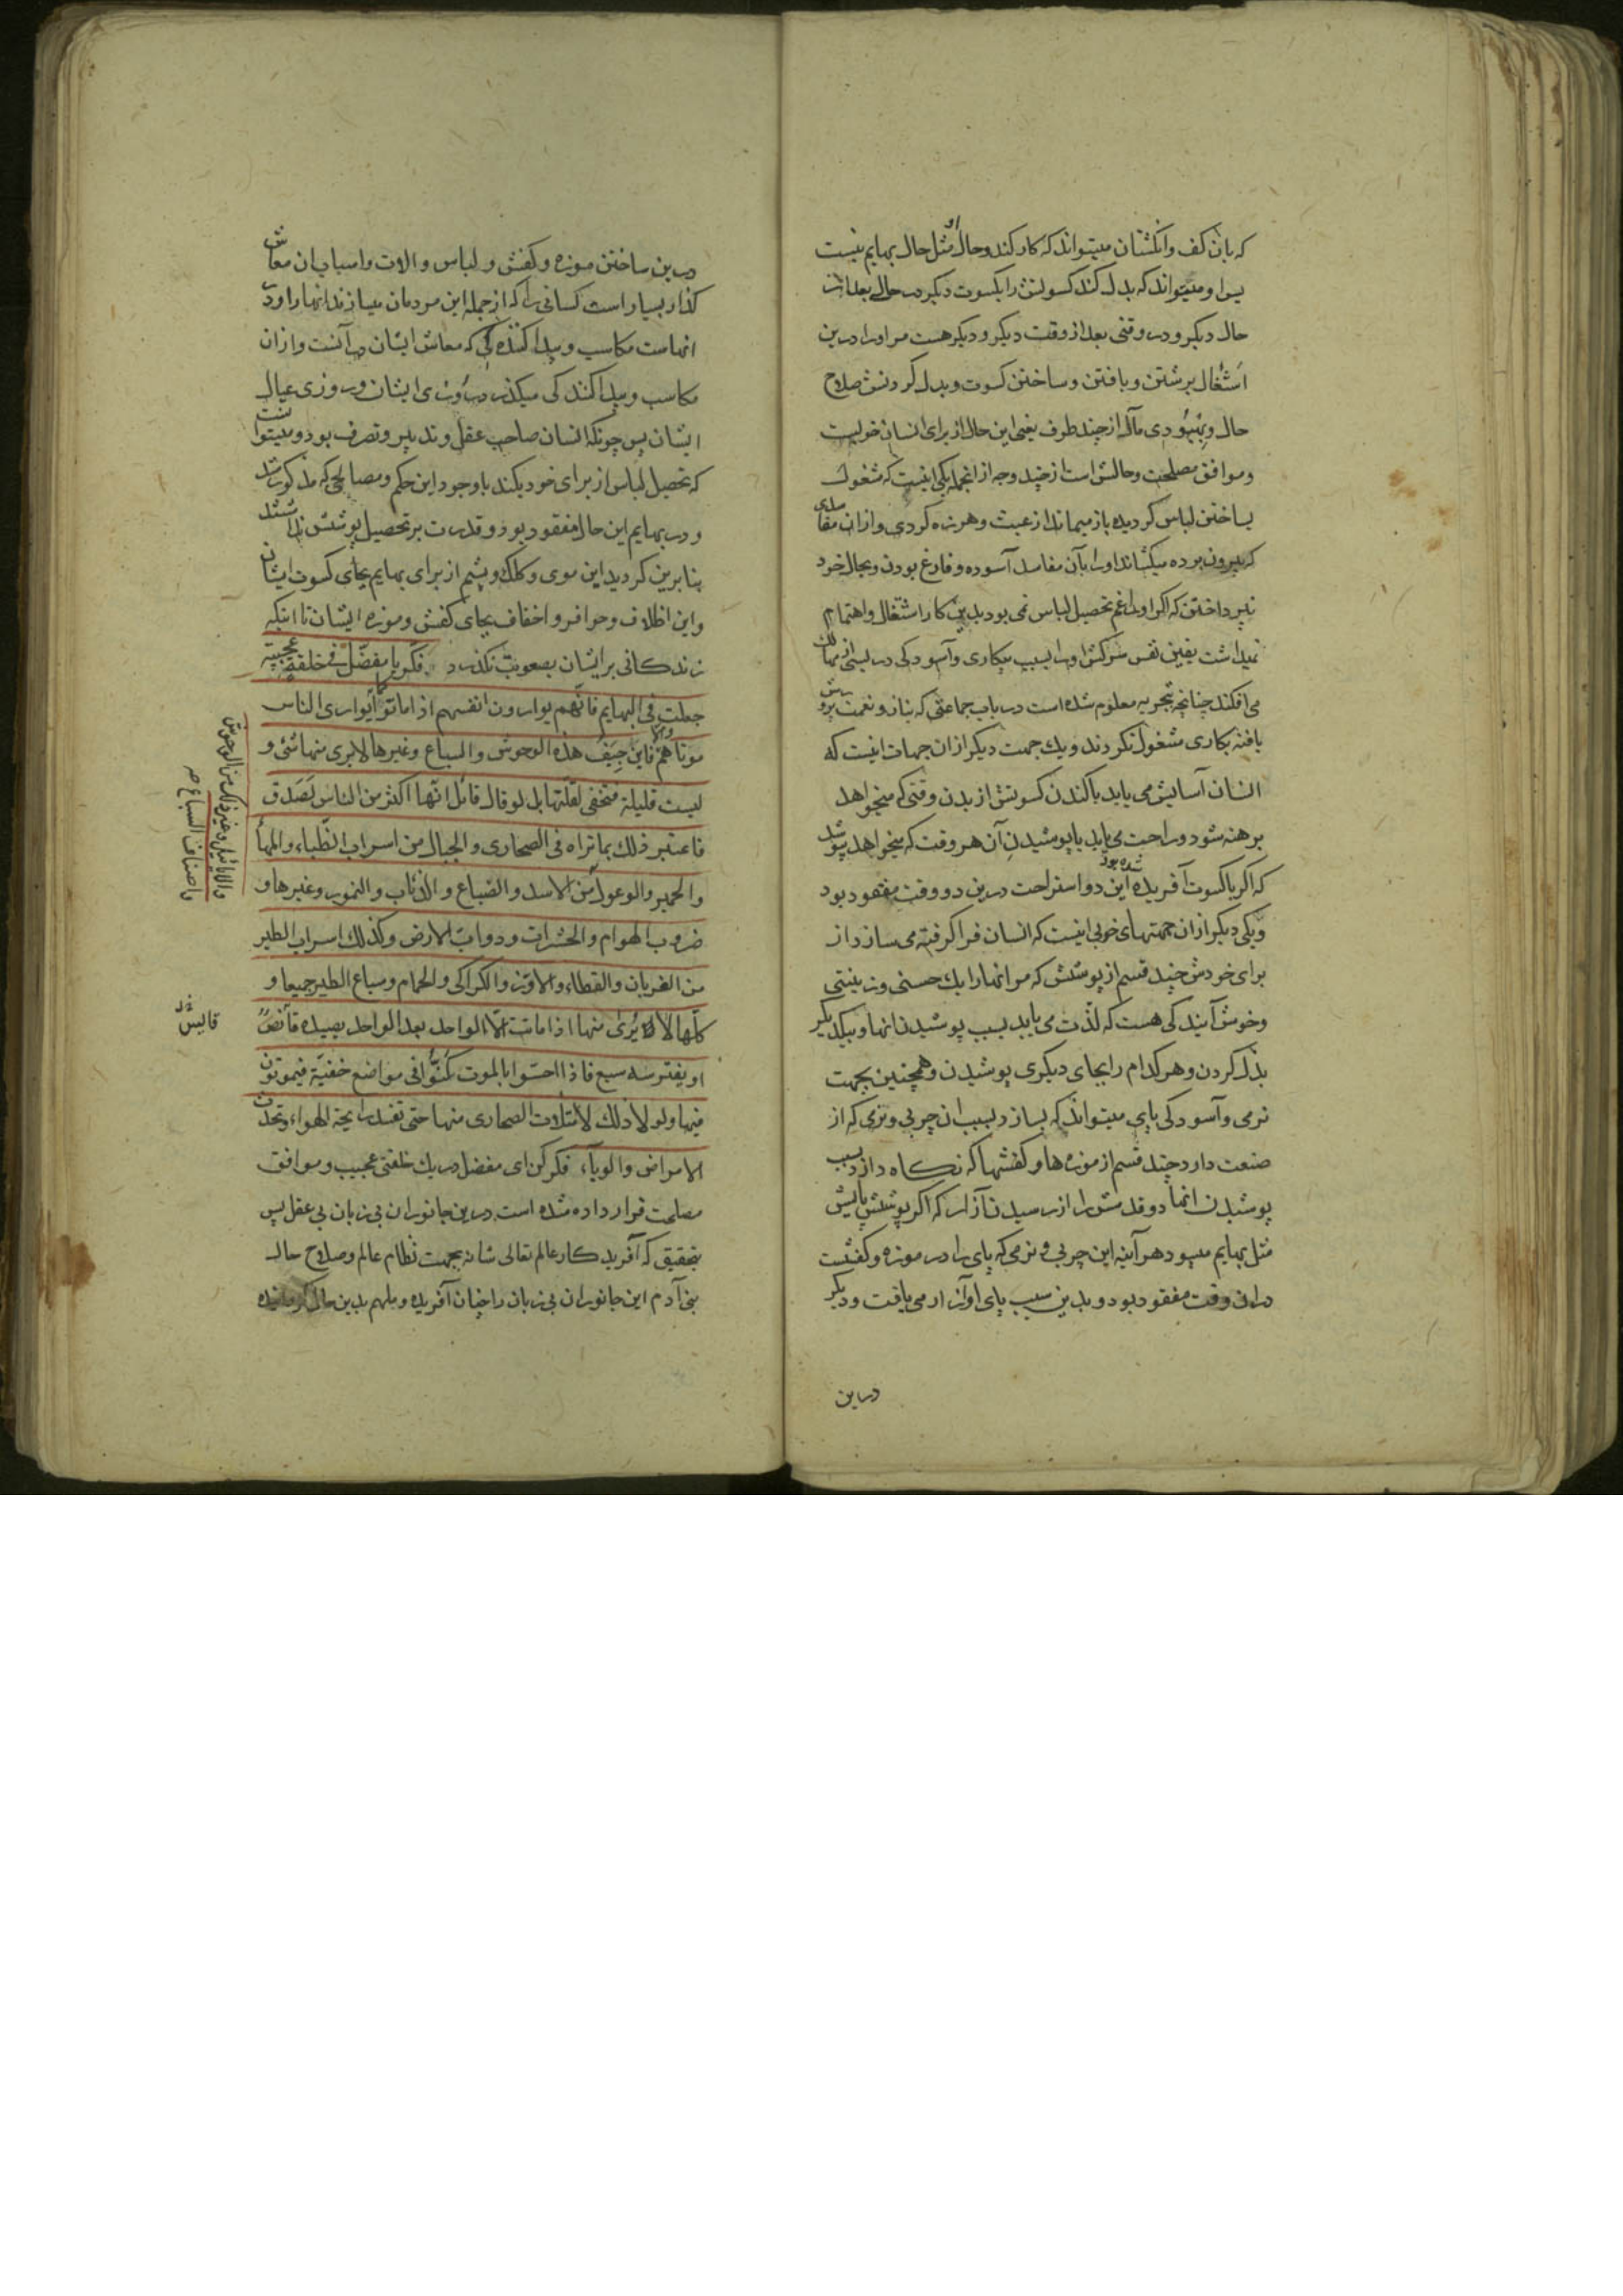 که بآن کف وانکشتان میتواند که کار کند وحال او مثل حال بهایم نیست
پس او میتواند که بدل کند کسوتش را بکسوت دیکر در حالی بعد از
حال دیکر و در وقتی بعد از وقت دیکر و دیکر هست مر او را درین
اشغال برشتن و بافتن و ساختن کسوت و بدل کردنش صلاح
حال و بهبودی مآل از چند طرف یعنی این حال از برای انسان خوبیست
و موافق مصلحت و حالش است از چند وجه از انجمله یکی اینست که مشغول
بساختن لباس کردیده باز میماند از عبث و هرزه کردی و از ان مفاسدی
که بیرون برده میکشاند او را بآن مفاسد آسوده و فارغ بودن و بحال خود
نپرداختن که اکر او را غم تحصیل لباس نمی بود بدین کار اشتغال و اهتمام
نمیداشت یقین نفس سرکش او را بسبب بیکاری و آسودکی در بسی از مهالک
می افکند چنانچه بتجربه معلوم شده است در باب جماعتی که بناز و نعمت پرورش
یافته بکاری مشغول نکردند و یک جهت دیکر از ان جهات اینست که
انسان آسایش می یابد باکندن کسوتش از بدن وقتی که میخواهد
برهنه شود و راحت می یابد با پوشیدن آن هر وقت که میخواهد پوشد
که اکر باکسوت آفریده شده بود این دو استراحت درین دو وقت مفقود بود
و یکی دیکر از ان جهتهای خوبی اینست که انسان فرا کرفته می سازد از
برای خودش چند قسم از پوشش که مر انها را یک حسنی و زینتی
و خوش آیندکی هست که لذّت می یابد بسبب پوشیدن انها و بیکدیکر
بدل کردن و هر کدام را بجای دیکری پوشیدن و همچنین بجهت
نرمی و آسودکی پای میتواند که بسازد بسبب ان چربی و نرمی که از
صنعت دارد چند قسم از موزه ها و کفشها که نکاه دارد بسبب
پوشیدن انها دو قدمش را از رسیدن آزار که اکر پوشش پایش
مثل بهایم میبود هر آینه این چربی و نرمی که پای را در موزه و کفشست
در ان وقت مفقود بود و بدین سبب پای او آزار می یافت و دیکر
درین
درین ساختن موزه و کفش و لباس و الات و اسباب ان معاش
کذار بسیار است کسانی را که از جمله این مردمان میسازند انها را و در
انهاست مکاسب و پیدا کننده کی که معاش ایشان در آنست و از ان
مکاسب و پیدا کنندکی میکذرد روزی ایشان و روزی عیال
ایشان پس چونکه انسان صاحب عقل و تدبیر و تصرف بود و میتوانست
که تحصیل لباس از برای خود بکند با وجود این حکم و مصالحی که مذکور شد
و در بهایم این حال مفقود بود و قدرت بر تحصیل پوشش نداشتند
بنابرین کردید این موی و کلک و پشم از برای بهایم بجای کسوت ایشان
و این اظلاف و حوافر و اخفاف بجای کفش و موزه ایشان تا اینکه
زندکانی بر ایشان بصعوبت نکذرد فکّر یا مفضّل فی خلقة عجیبة
جعلت فی البهایم فانّهم یوارون انفسهم اذا ماتوا کما یواری الناس
موتاهم والّا فاین جیف هذه الوحوش والسباع وغیرها لا یری منها شئ و
لیست قلیلة فتخفی لقلّتها بل لو قال قائل انّها اکثر من الناس لصدق
فاعتبر ذلک بما تراه فی الصحاری والجبال من اسراب الظّباء والمها
والحمیر والوعول من الاسد والضباع والذئاب والنمور وغیرها و
ضروب الهوام والحشرات ودواب الارض وکذلک اسراب الطیر
من الغربان والقطاء والاوز والکراکی والحمام وسباع الطیر جمیعا و
کلّها لا یُرى منها اذا ماتت الّا الواحد بعد الواحد یصیده قانصٌ
او یفترسه سبع فاذا احسّوا بالموت کمنُوا فی مواضع خفیّة فیموتون
فیها ولولا ذلک لامتلأت الصحاری منها حتی تفسد رایحة الهواء وتحدث
الامراض والوباء، فکر کن ای مفضل در یک خلقتی عجیب و موافق
مصلحت قرار داده شده است درین جانوران بی زبان بی عقل پس
بتحقیق که آفریدکار عالم تعالی شانه بجهت نظام عالم و صلاح حال
بنی آدم این جانوران بی زبان را چنان آفریده و ملهم بدین حال کردانیده
والایائیل وغیر ذلک من الوحوش
واصناف السباع